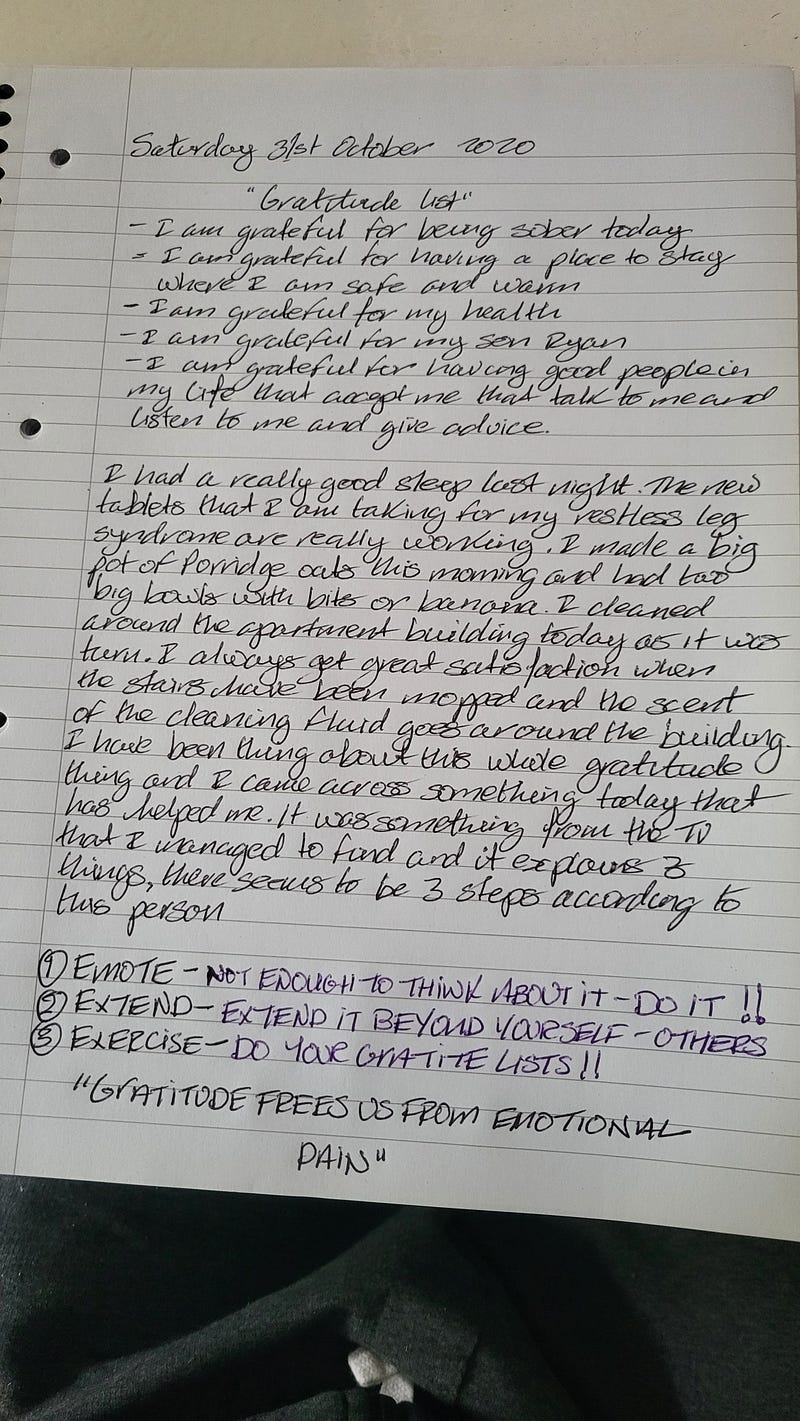 Saturday 31st October 2020
"Gratitude list"
- I am grateful for being sober today
- I am grateful for having a place to stay
where I am safe and warm
- I am grateful for my health
- I am grateful for my son Ryan
- I am grateful for having good people in
my life that accept me that talk to me and
listen to me and give advice.
I had a really good sleep last night. The new
tablets that I am taking for my restless leg
syndrome are really working. I made a big
pot of Porridge oats this morning and had two
big bowls with bits or banana. I cleaned
around the apartment building today as it was
turn. I always get great satisfaction when
the stairs have been mopped and the scent
of the cleaning fluid goes around the building.
I have been thing about this whole gratitude
thing and I came across something today that
has helped me. It was something from the TV
that I managed to find and it explains 3
things, there seems to be 3 steps according to
this person
① EMOTE - NOT ENOUGH TO THINK ABOUT iT - DO iT !!
② EXTEND - EXTEND IT BEYOND YOURSELF - OTHERS
③ EXERCISE - DO YOUR GRATITE LISTS!!
"GRATITUDE FREES US FROM EMOTIONAL
PAIN"